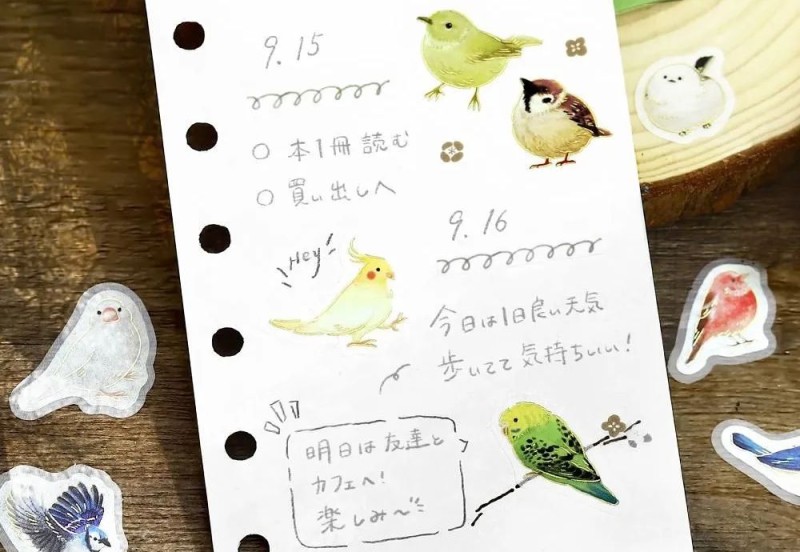 9.15
○ 本1冊読む
○ 買い出しへ
Hey!
9.16
今日は1日良い天気
歩いてて気持ちいい!
明日は友達と
カフェへ!
楽しみ〜